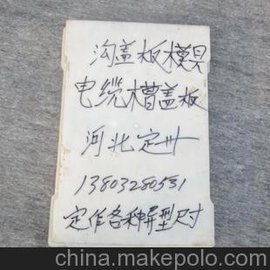 沟盖板模具
电缆槽盖板
河北定州
13803280531
定作各种异型尺寸
china.makepolo.com